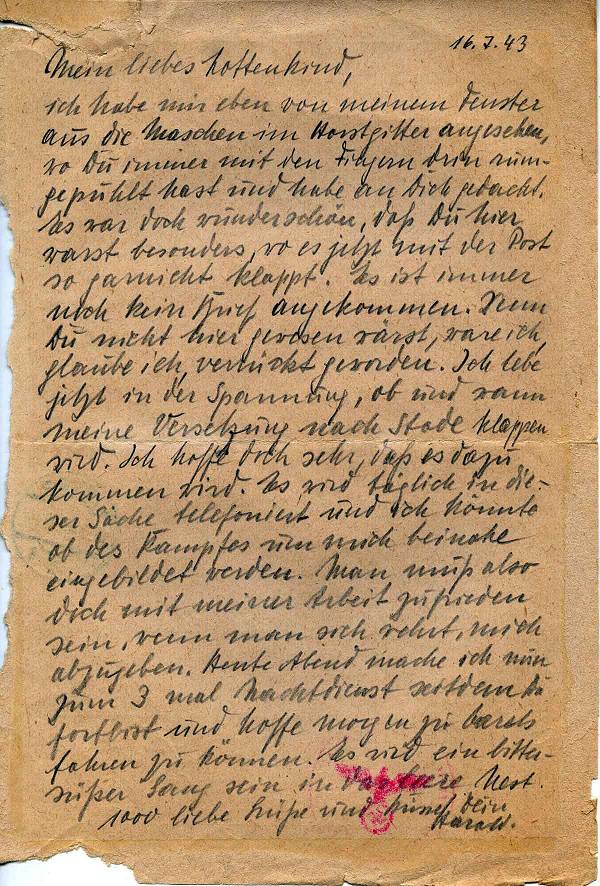 16.7.43
Mein liebes Lottenkind,
ich habe mir eben von meinem Fenster
aus die Maschen im Horstgitter angesehen,
wo Du immer mit den Fingern drin rum-
gepuhlt hast und habe an Dich gedacht.
Es war doch wunderschön, daß Du hier
warst besonders, wo es jetzt mit der Post
so garnicht klappt. Es ist immer
noch kein Brief angekommen. Wenn
Du nicht hier gewesen wärst, wäre ich,
glaube ich, verrückt geworden. Ich lebe
jetzt in der Spannung, ob und wann
meine Versetzung nach Stade klappen
wird. Ich hoffe doch sehr, daß es dazu
kommen wird. Es wird täglich in die-
ser Sache telefoniert und ich könnte
ob des Kampfes um mich beinahe
eingebildet werden. Man muß also
doch mit meiner Arbeit zufrieden
sein, wenn man sich wehrt, mich
abzugeben. Heute Abend mache ich nun
zum 3 mal Nachtdienst seitdem Du
fort bist und hoffe morgen zu
fahren zu können. Es wird ein bitter-
süßer Gang sein in das leere Nest.
1000 liebe Grüße und Küsse, Dein
Harald.